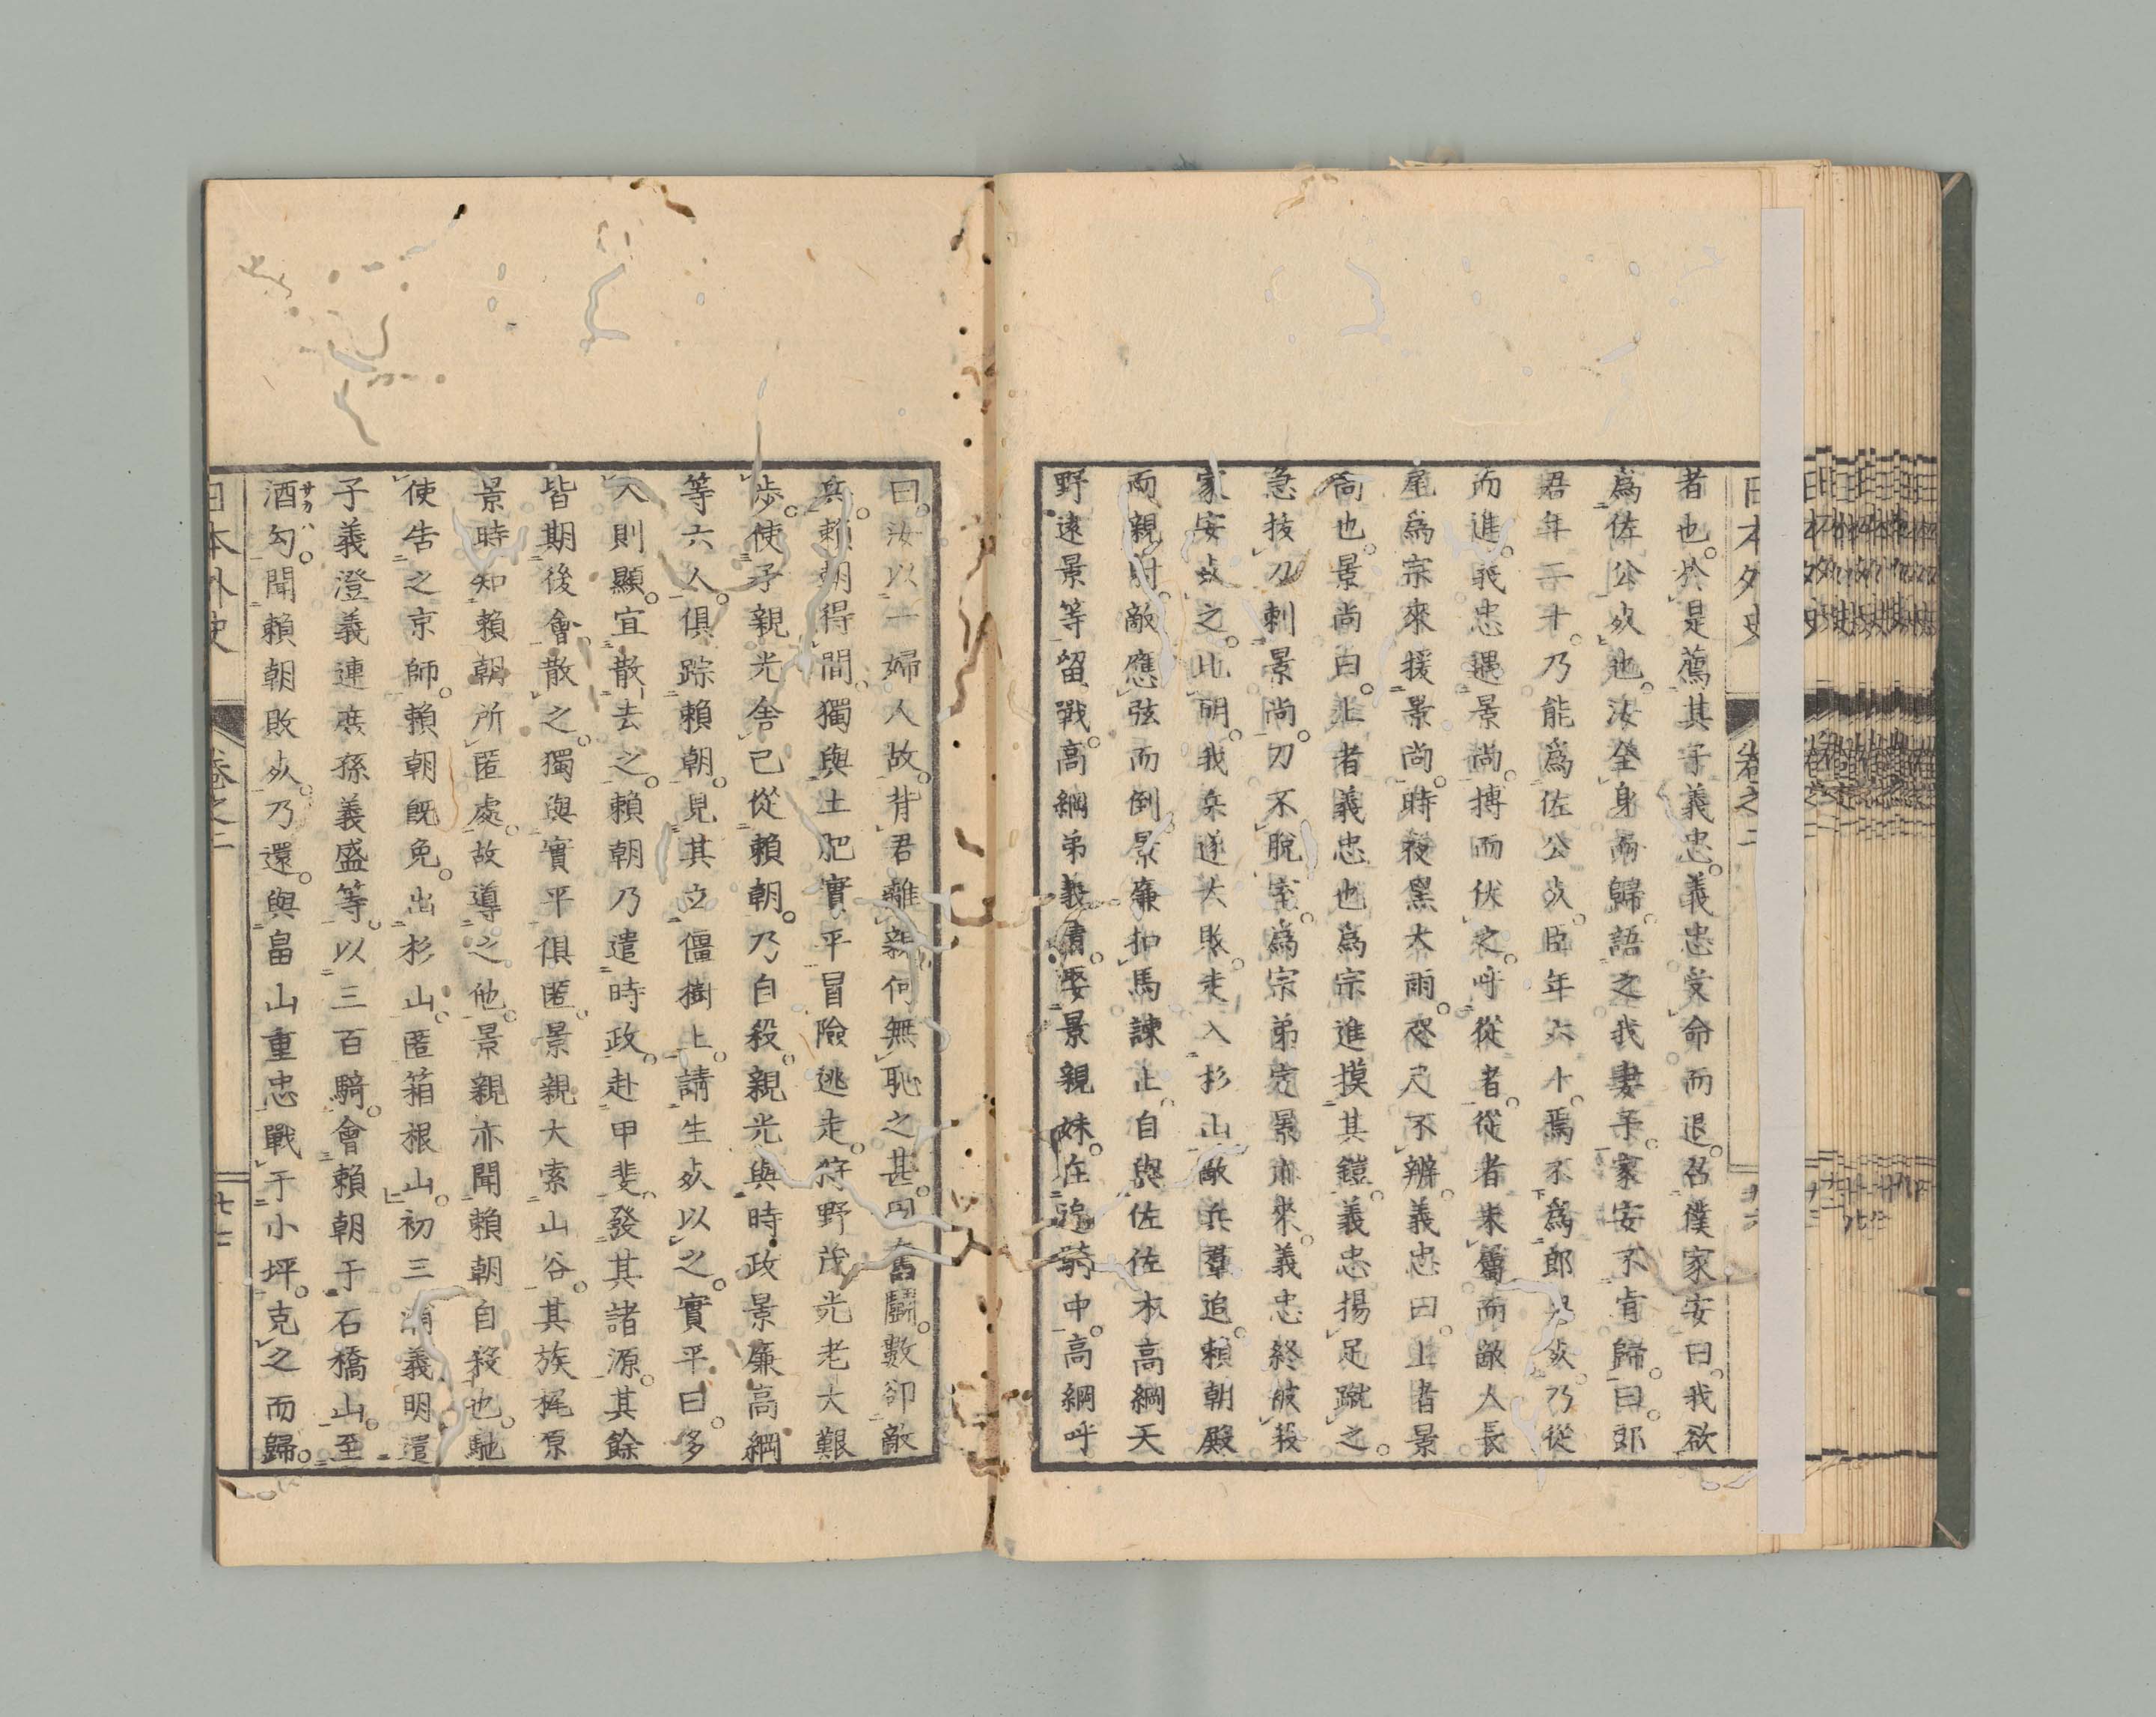 者也。於是薦其子義忠。義忠受命而退。召僕家安曰。我欲
爲佐公死也。汝全身而歸。語之我妻子。家安不肯歸。曰。郎
君年二十。乃能爲佐公死。臣年六十。焉不爲郎君死。乃從
而進。義忠遇景尚。搏而伏之。呼從者。從者未屬。而敵人長
尾爲宗來援景尚。時夜黑大雨。咫尺不辨。義忠曰。上者景
尚也。景尚曰。上者義忠也。爲宗進摸其鎧。義忠揚足蹴之。
急拔刀刺景尚。刀不脫室。爲宗弟定景亦來。義忠終被殺。
家安死之。比明。我兵遂大敗走入杉山。敵兵羣追。賴朝殿
而親射。敵應弦而倒。景廉扣馬諫止。自與佐佐木高綱天
野遠景等留戰。高綱弟義淸。娶景親妹。在追騎中。高綱呼
曰。汝以一婦人故。背君離親。何無恥之甚。因奮鬪。數卻敵
兵。賴朝得間。獨與土肥實平冒險逃走。狩野茂光老大艱
步。使子親光舍己從賴朝。乃自殺。親光與時政景廉高綱
等六人。俱踪賴朝。見其立僵樹上。請生死以之。實平曰。多
人則顯。宜散去之。賴朝乃遣時政。赴甲斐。發其諸源。其餘
皆期後會。散之。獨與實平俱匿。景親大索山谷。其族梶原
景時知賴朝所匿處。故導之他。景親亦聞賴朝自殺也。馳
使告之京師。賴朝既免。出杉山。匿箱根山。初三浦義明遣
子義澄義連庶孫義盛等。以三百騎。會賴朝于石橋山。至
酒匂。聞賴朝敗死。乃還。與畠山重忠戰于小坪。克之而歸。
日本外史 卷之二 廿七